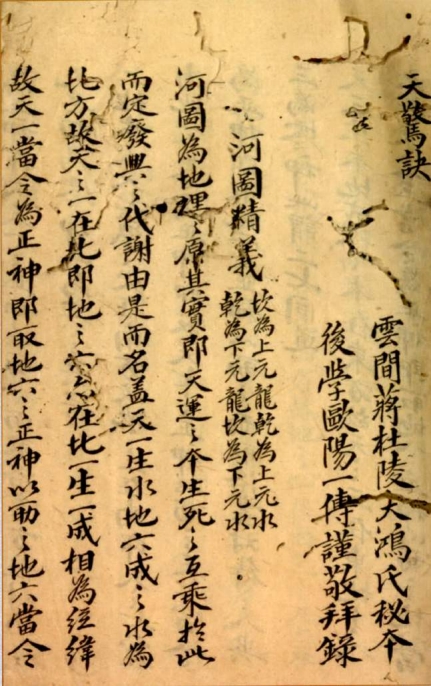 天驚訣
雲間蔣杜陵大鴻氏秘夲
後學歐陽一傳謹敬拜錄
河圖精義
坎為上元龍乾為上元水
乾為下元龍坎為下元水
河圖為地理之原其實即天運之夲生死之互乘於此
而定癈興之代謝由是而名盖天一生水地六成之水為
北方故天之一在北即地之六亦在北一生一成相為經緯
故天一當令為正神即取地六之正神以助之地六當令